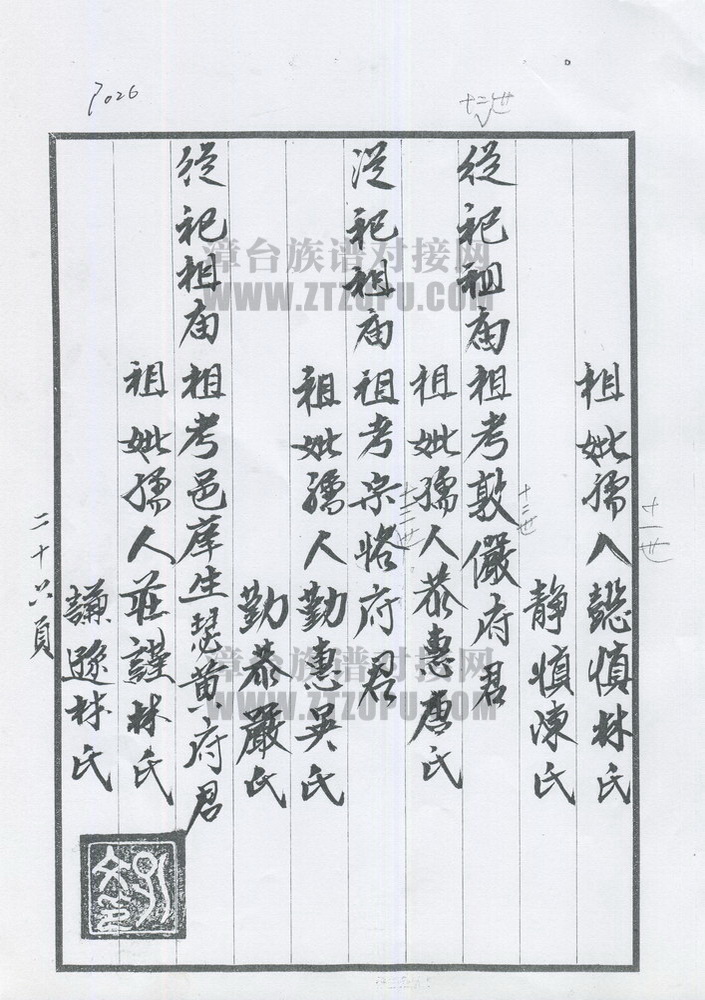 P026
十二世
十一世
祖妣孺人懿慎林氏
静慎陳氏
從祀祖庙祖考敦儼府君
十三世
祖妣孺人恭惠唐氏
從祀祖庙祖考宗恪府君
十三世
祖妣孺人勤惠吴氏
勤恭嚴氏
從祀祖庙祖考邑庠生瑟黄府君
祖妣孺人莊謹林氏
謙遜林氏
二十六頁
漳台族谱对接网
WWW.ZTZOPU.COM
漳台族谱对接网
WWW.ZTZOPU.COM